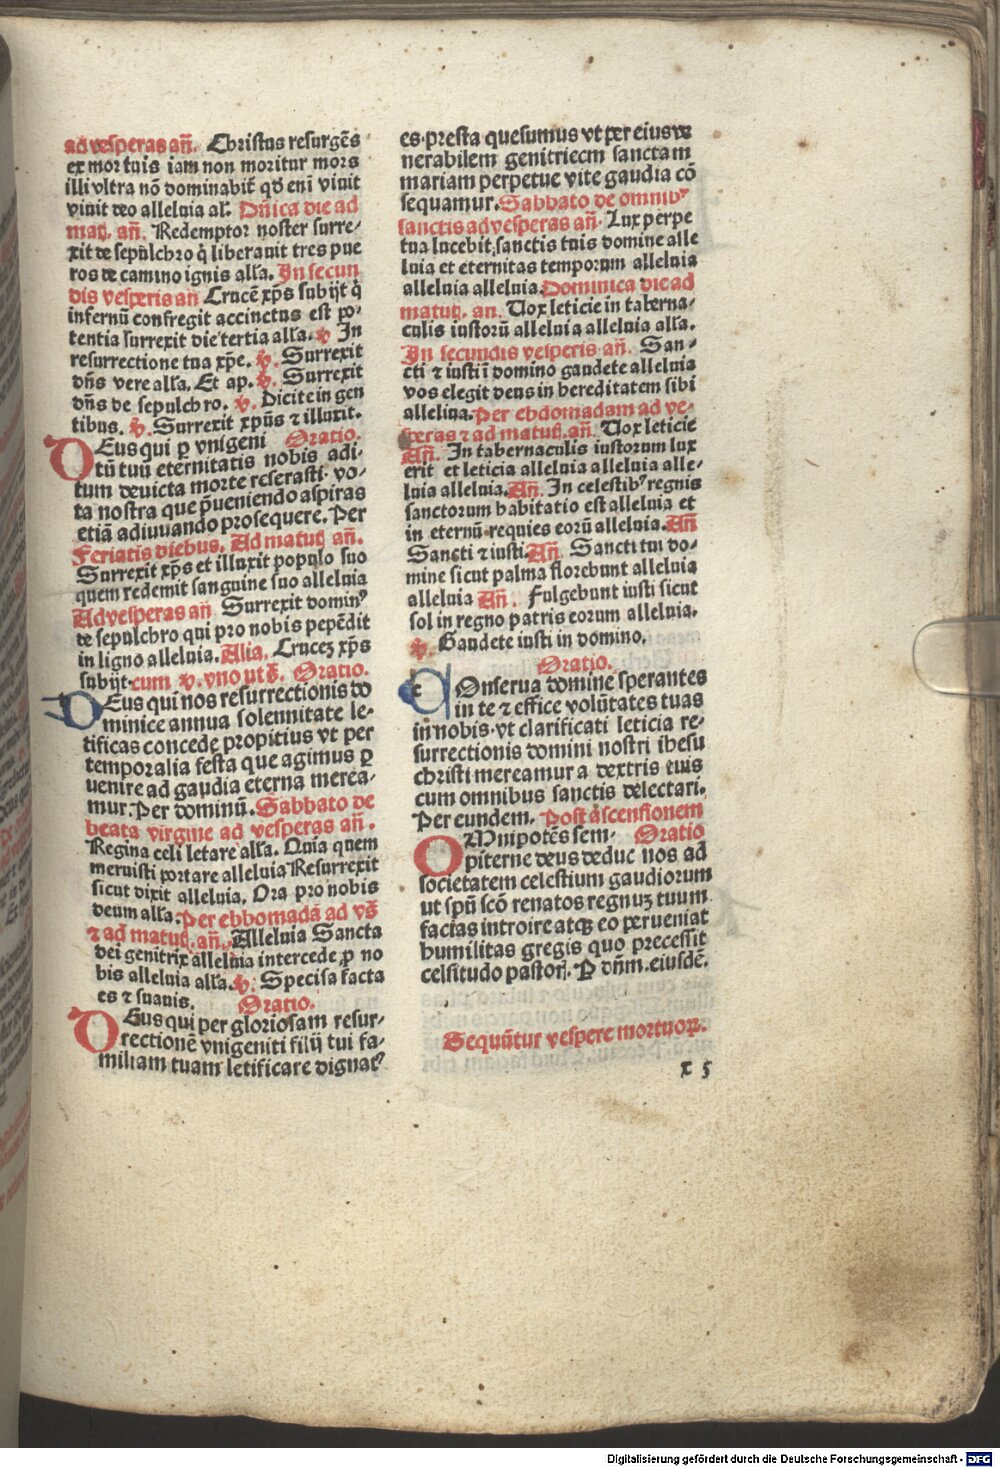 ad vesperas añ. Christus resurgẽs
ex mortuis iam non moritur mors
illi vltra nõ dominabit̃ qd̾ eni vinit
viuit deo alleluia al'. Dñica die ad
mat̄. añ. Redemptor noster surre/
xit de sepulchro q̇ liberauit tres pue
ros de camino ignis alľa. In secun
dis vesperis añ Crucẽ xp̄s subijt q̇
infernũ confregit accinctus est po/
tentia surrexit die tertia alľa. ℣ In
resurrectione tua xp̄e. ℣. Surrexit
dñs vere alľa. Et ap. ℣. Surrexit
dñs de sepulchro. ℣. Dicite in gen
tibus. ℟. Surrexit xpūs ⁊ illuxit.
DEus qui ꝑ vnigeni Oratio.
tũ tuũ eternitatis nobis adi/
tum deuicta morte reserasti. vo/
ta nostra que p̄ueniendo aspiras
etiã adiuuando prosequere. Per
Feriatis diebus. Ad matut̄ añ.
Surrexit xp̄s et illuxit populo suo
quem redemit sanguine suo alleluia
Ad vesperas añ Surrexit dominꝰ
de sepulchro qui pro nobis pepẽdit
in ligno alleluia. Alia. Crucez xp̄s
subijt. cum ℣. vno ut s̄. Oratio.
DEus qui nos resurrectionis do
minice annua solennitate le-
tificas concede propitius vt per
temporalia festa que agimus ꝑ
uenire ad gaudia eterna merea-
mur. Per dominũ. Sabbato de
beata virgine ad vesperas añ.
Regina celi letare alľa. Quia quem
meruisti portare alleluia Resurrexit
sicut dixit alleluia. Ora pro nobis
deum alľa. Per ebbomadã ad vs̄
⁊ ad matut̄. añ. Alleluia Sancta
dei genitrix alleluia intercede ꝓ no
bis alleluia alľa. ℣. Speciosa facta
es ⁊ suauis. Oratio.
DEus qui per gloriosam resur-
rectionẽ vnigeniti filij tui fa-
miliam tuam letificare dignatꝰ
es. presta quesumus vt per eius ve
nerabilem genitricem sanctam
mariam perpetue vite gaudia cõ
sequamur. Sabbato de omnibꝰ
sanctis ad vesperas añ. Lux perpe
tua lucebit sanctis tuis domine alle
luia et eternitas temporum alleluia
alleluia alleluia. Dominica die ad
matut̄. an. Vox leticie in taberna-
culis iustorũ alleluia alleluia alľa.
In secundis vesperis añ. San-
cti ⁊ iusti ĩ domino gaudete alleluia
vos elegit deus in hereditatem sibi
alleluia. Per ebdomadam ad ve-
speras ⁊ ad matut̄. añ. Vox leticie
Añ. In tabernaculis iustorum lux
erit et leticia alleluia alleluia alle/
luia alleluia. Añ. In celestibꝰ regnis
sanctorum habitatio est alleluia et
in eternũ requies eorũ alleluia. Añ
Sancti ⁊ iusti Añ. Sancti tui do-
mine sicut palma florebunt alleluia
alleluia Añ. Fulgebunt iusti sicut
sol in regno patris eorum alleluia.
℣. Gaudete iusti in domino.
Oratio.
COnserua domine sperantes
in te ⁊ effice volũtates tuas
in nobis. vt clarificati leticia re-
surrectionis domini nostri ihesu
christi mereamur a dextris euis
cum omnibus sanctis delectari.
Per eundem. Post ascensionem
OMnipotẽs sem- Oratio
piterne deus deduc nos ad
societatem celestium gaudiorum
ut spũ scõ renatos regnuz tuum
facias introire atqꝫ eo perueniat
humilitas gregis quo precessit
celsitudo pastoř. P dñm. eiusdẽ.
Sequũtur vespere mortuoꝝ.
x 5
Digitalisierung gefördert durch die Deutsche Forschungsgemeinschaft - DFG